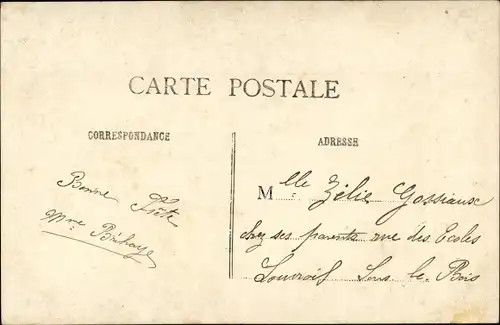 CARTE POSTALE
CORRESPONDANCE
Bonne Fête
Mme Bihaye
ADRESSE
Mlle Zélie Gossiaux
chez ses parents rue des Ecoles
Louvroil Sous le Bois